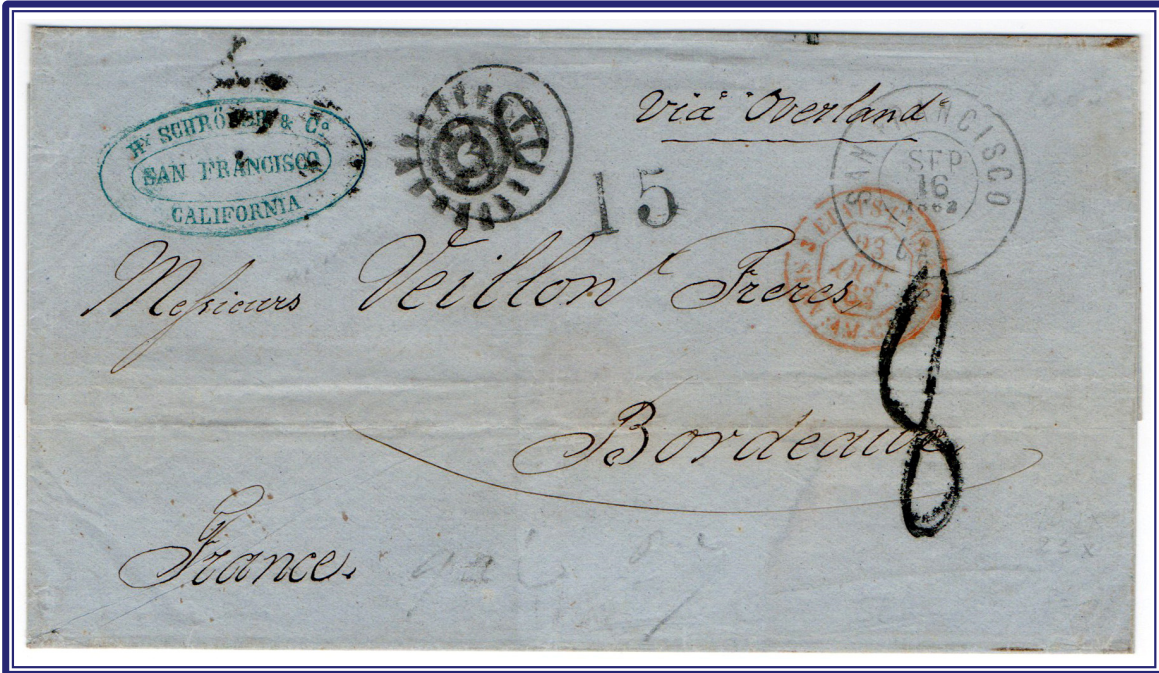 Hy SCHRÖDER & Co.
SAN FRANCISCO
CALIFORNIA
Via "Overland"
SAN FRANCISCO
SEP
16
15
23
OCT
62
Messieurs Veillon Freres
8
Bordeaux
France.